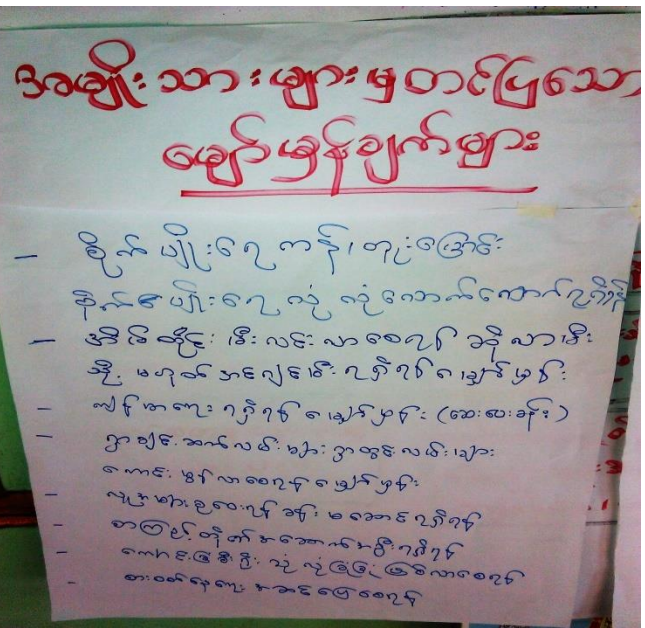 အမျိုးသားများမှတင်ပြသော
မျှော်မှန်းချက်များ
- စိုက်ပျိုးရေကန်၊ တူးမြောင်း
စိုက်ပျိုးရေလုံလုံလောက်လောက်ရရှိရန်
- အိမ်တိုင်း မီးလင်းလာစေရန် ဆိုလာမီး
သို့မဟုတ် အခြေခံမီးရရှိရန် မျှော်မှန်း
- ကျန်းမာရေး ရရှိရန် မျှော်မှန်း (ဆေးပေးခန်း)
- ရွာချင်းဆက်လမ်းများ ရွာတွင်းလမ်းများ
ကောင်းမွန်လာစေရန် မျှော်မှန်း
- လူထုများစုဝေးရန် ခန်းမဆောင်ရရှိရန်
- စာကြည့်တိုက်အဆောက်အဦးရရှိရန်
- ကျောင်းပြီး သုံ လုံခြုံ ဖြစ်လာစေရန်
- စားဝတ်နေရေး အဆင်ပြေစေရန်